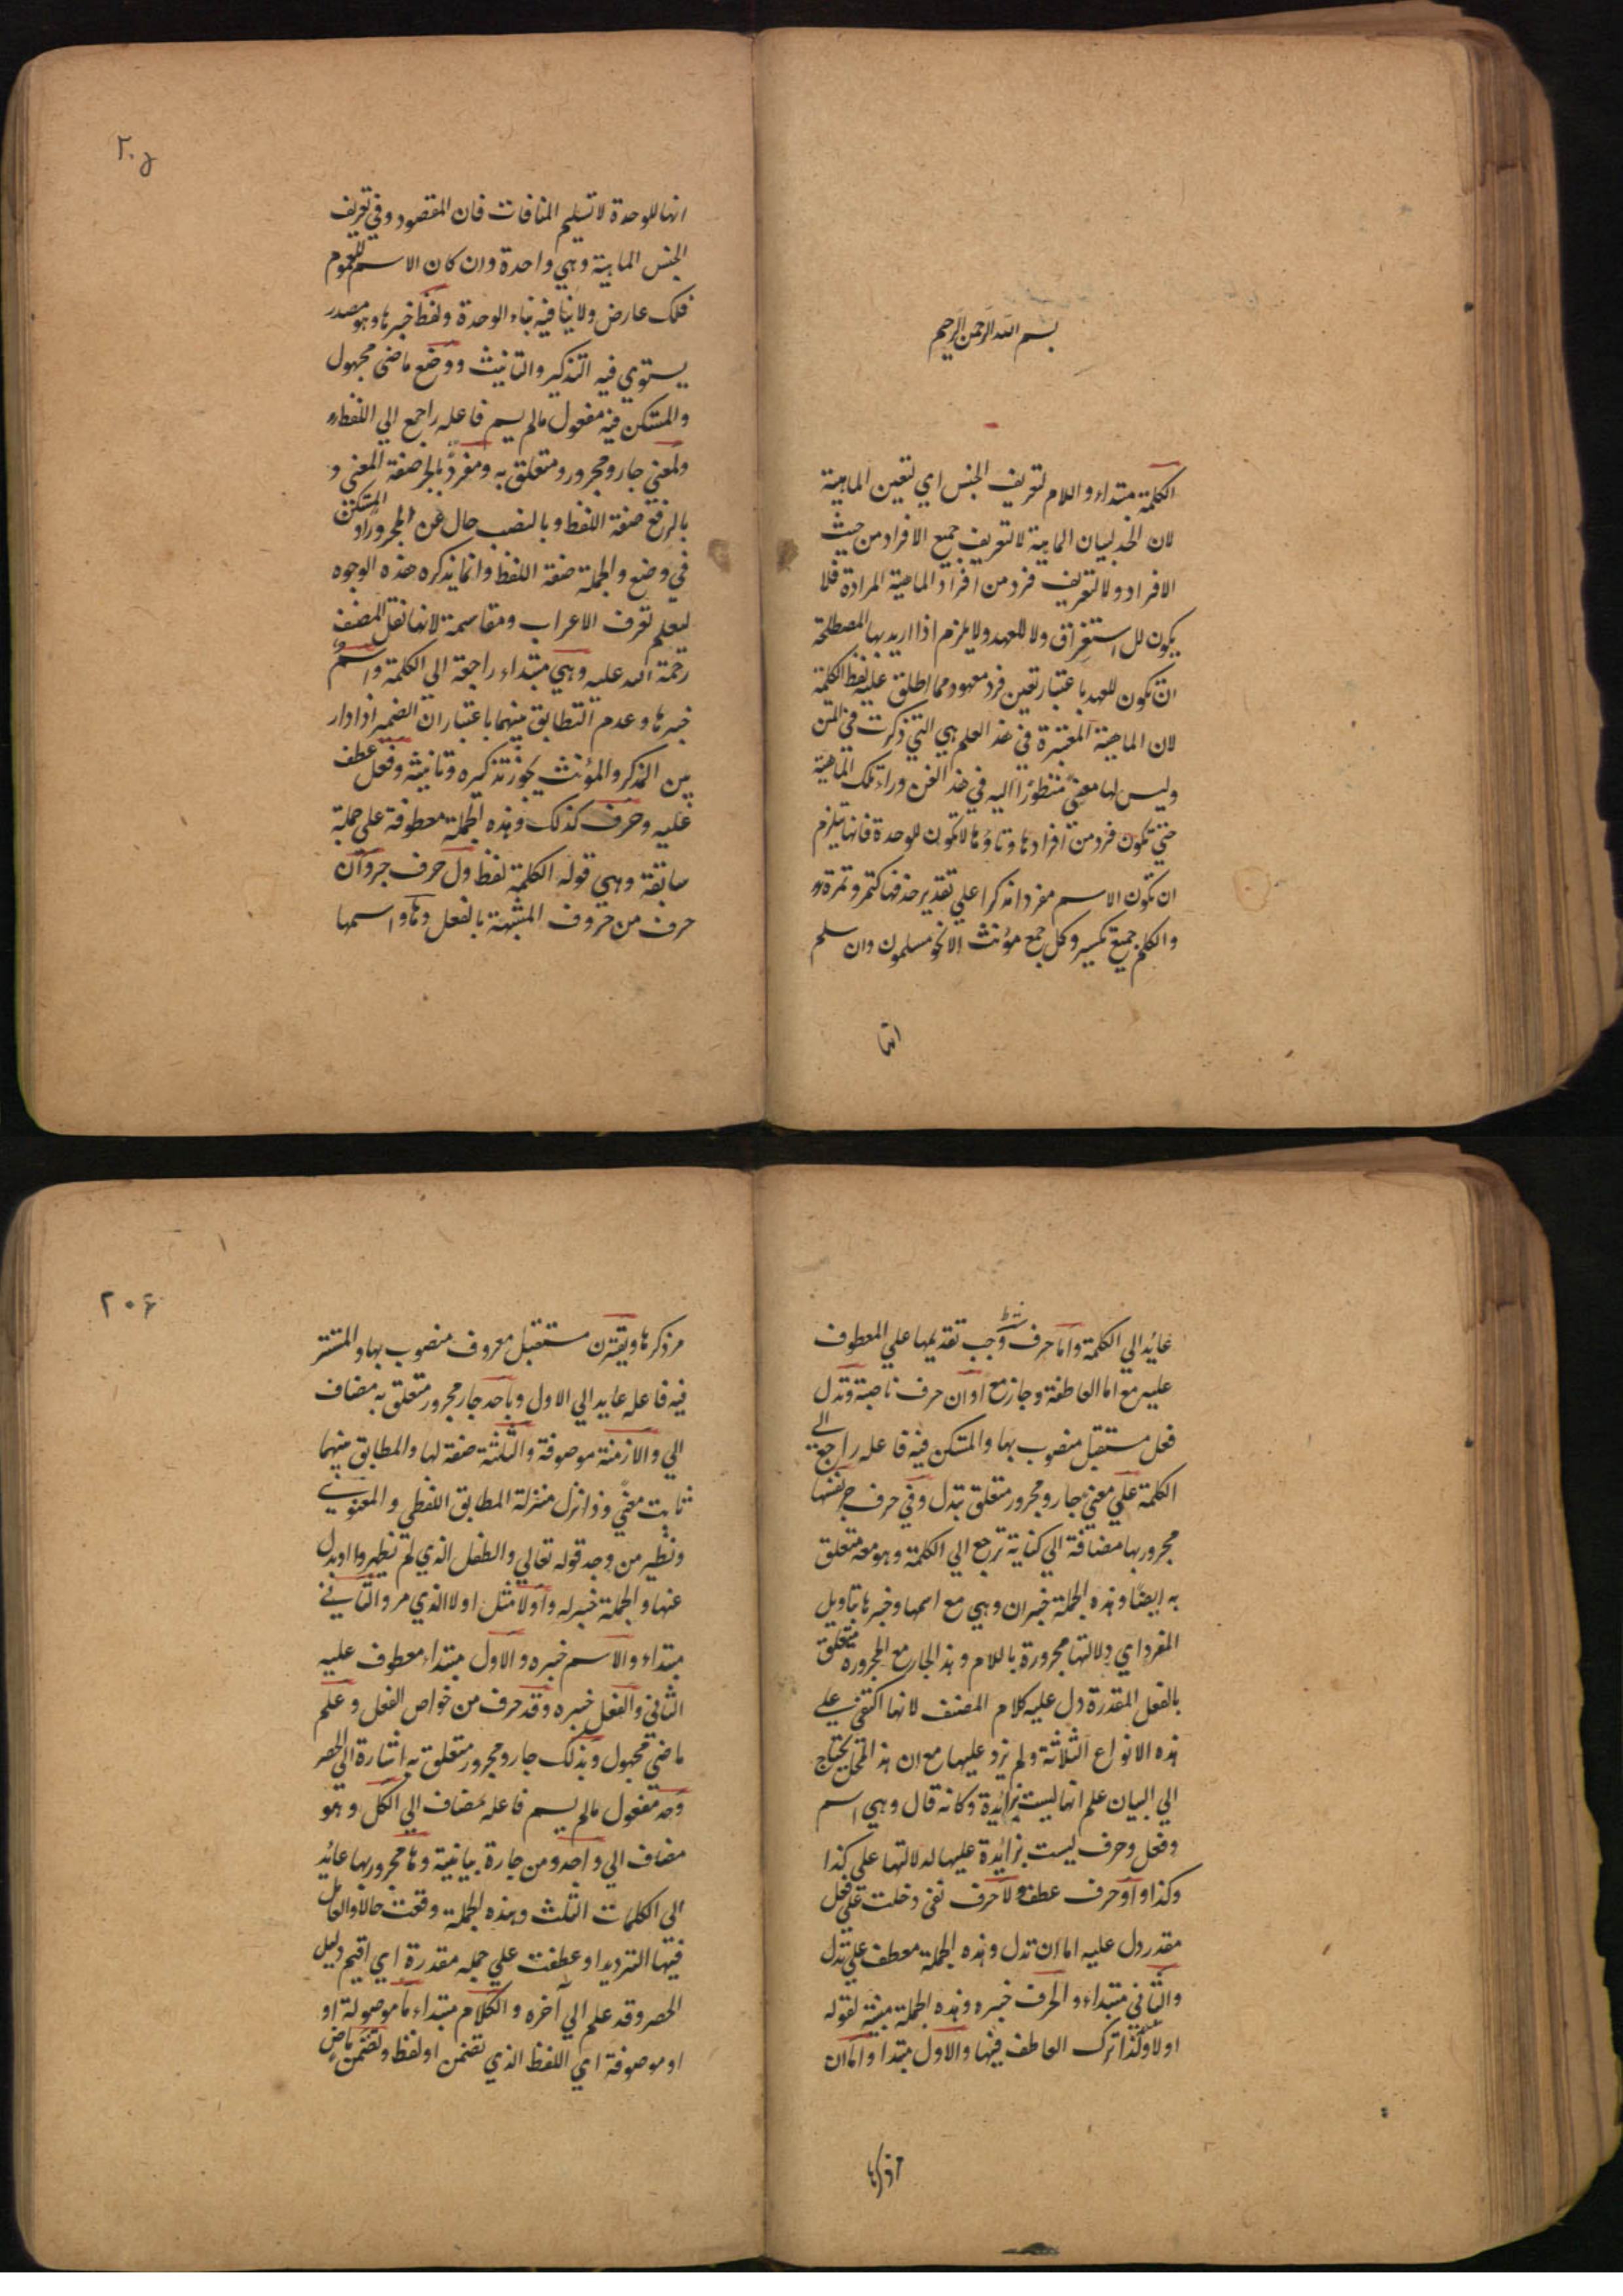 بسم الله الرحمن الرحيم
الكلمة مبتداء واللام لتعريف الجنس اي لتعين الماهية
لان الحد لبيان الماهية لا لتعريف جميع الافراد من حيث
الافراد ولا لتعريف فرد من افراد الماهية المرادة فلا
يكون للاستغراق ولا للعهد ولا يلزم اذا اريد بها المصطلحة
ان تكون للعهد باعتبار تعين فرد معهود مما اطلق عليه لفظ الكلمة
لان الماهية المعتبرة في هذ العلم هي التي ذكرت في المتن
وليس لها معنى منظورا اليه في هذ الفن وراء تلك الماهية
حتى تكون فرد من افرادها وتاؤها لا تكون للوحدة فانها يلزم
ان تكون الاسم مفردا مذكرا على تقدير حذفها كتمر وتمرة
والكلم جمع تكسير وكل جمع مؤنث الا نحو مسلمون وان سلم
انها
٢٠۵
انها للوحدة لا تسليم المنافات فان المقصود في تعريف
الجنس الماهية وهي واحدة وان كان الاسم للعموم
فلك عارض ولا ينافيه بناء الوحدة ولفظ خبرها وهو مصدر
يستوي فيه التذكير والتانيث ووضع ماضي مجهول
والمستكن فيه مفعول مالم يسم فاعله راجع الي اللفظ
ولمعني جار ومجرور ومتعلق به ومفرد بالجر صفة المعني و
بالرفع صفة اللفظ وبالنصب حال عن المجرور او المستكن
في وضع والجملة صفة اللفظ وانما يذكره هذه الوجوه
ليعلم تعرف الاعراب ومقاسمة لانها نقل المصنف
رحمة الله عليه وهي مبتداء راجعة الي الكلمة واسم
خبرها وعدم التطابق بينهما باعتبار ان الضمير اذا دار
بين المذكر والمؤنث يجوز تذكيره وتانيثه وفعل عطف
عليه وحرف كذلك وهذه الجملة معطوفة علي جملة
سابقة وهي قوله الكلمة لفظ ول حرف جر وان
حرف من حروف المشبهة بالفعل وها اسمها
عائد الي الكلمة واما حرف شرط وجب تقديمها علي المعطوف
عليه مع اما العاطفة وجاز مع او ان حرف ناصبة وتدل
فعل مستقبل منصوب بها والمستكن فيه فاعله راجع الي
الكلمة علي معني جار ومجرور متعلق بتدل وفي حرف جر نفسها
مجرور بها مضافة الي كناية ترجع الي الكلمة وهو معه متعلق
به ايضا وهذه الجملة خبر ان وهي مع اسمها وخبرها بتاويل
المفرد اي دلالتها مجرورة باللام وهذ الجار مع المجروره متعلق
بالفعل المقدرة دل عليه كلام المصنف لانها اكتفي علي
هذه الانواع الثلاثة ولم يزد عليها مع ان هذ المحل يحتاج
الي البيان علم انها ليست بزائدة وكانه قال وهي اسم
وفعل وحرف ليست بزائدة عليها لدلالتها علي كذا
وكذا واو حرف عطف ولا حرف نفي دخلت علي فعل
مقدر دل عليه اما ان تدل وهذه الجملة معطف علي تدل
والثاني مبتداء والحرف خبره وهذه الجملة مبينة لقوله
اولا ولذا ترك العاطف فيها والاول مبتدا واما ان
٢٠۶
مر ذكرها ويقترن مستقبل معروف منصوب بها والمستتر
فيه فاعله عايد الي الاول وباحد جار مجرور متعلق به مضاف
الي والازمنة موصوفة والثلثة صفة لها والمطابق بينهما
ثابت معنى وذا نزل منزلة المطابق اللفظي والمعنوي
ونظير من وجه قوله تعالي والطفل الذي لم يظهروا او بدل
عنها والجملة خبر له واولا مثل اولا الذي مر والثاني
مبتداء والاسم خبره والاول مبتداء معطوف عليه
الثاني والفعل خبره وقد حرف من خواص الفعل وعلم
ماضي مجهول وبذلك جار ومجرور متعلق به اشارة الي الحصر
وحد مفعول مالم يسم فاعله مضاف الي الكل وهو
مضاف الي واحد ومن جارة بيانية وها مجرور بها عائد
الي الكلمات الثلث وهذه الجملة وقعت حالا والعامل
فيها الترديد او عطفت علي جمله مقدرة اي اقيم دليل
الحصر وقد علم الي آخره والكلام مبتداء ما موصولة او
او موصوفة اي اللفظ الذي تضمن او لفظ وتضمن ماض